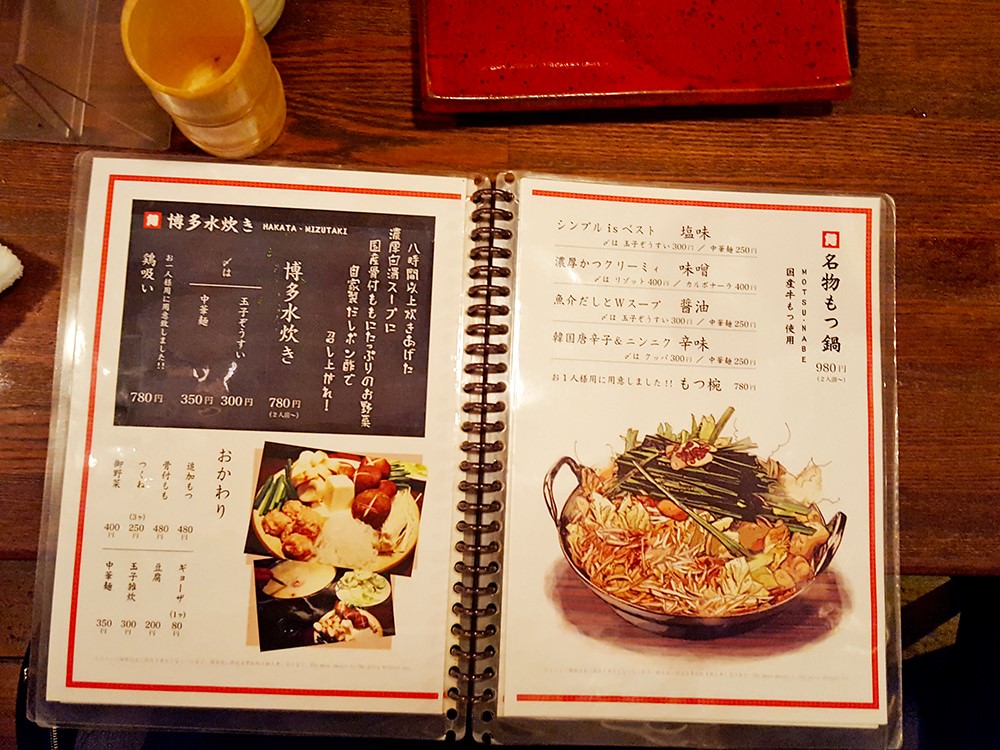 名物もつ鍋
MOTSU-NABE
国産牛もつ使用
980円
(2人前〜)
シンプル is ベスト 塩味
〆は 玉子ぞうすい 300円 / 中華麺 250円
濃厚かつクリーミィ 味噌
〆は リゾット 400円 / カルボナーラ 400円
魚介だしとWスープ 醤油
〆は 玉子ぞうすい 300円 / 中華麺 250円
韓国唐辛子&ニンニク 辛味
〆は クッパ 300円 / 中華麺 250円
お1人様用に用意しました!! もつ椀 780円
博多水炊き HAKATA-MIZUTAKI
八時間以上炊きあげた
濃厚白湯スープに
国産骨付ももにたっぷりのお野菜
自家製だしポン酢で
召し上がれ!
博多水炊き
780円
(2人前〜)
〆は
玉子ぞうすい 300円
中華麺 350円
お一人様用に用意致しました!!
鶏吸い 780円
おかわり
追加もつ 480円
骨付もも 480円
つくね (3ヶ) 250円
御野菜 400円
ギョーザ (1ヶ) 80円
豆腐 200円
玉子雑炊 300円
中華麺 350円